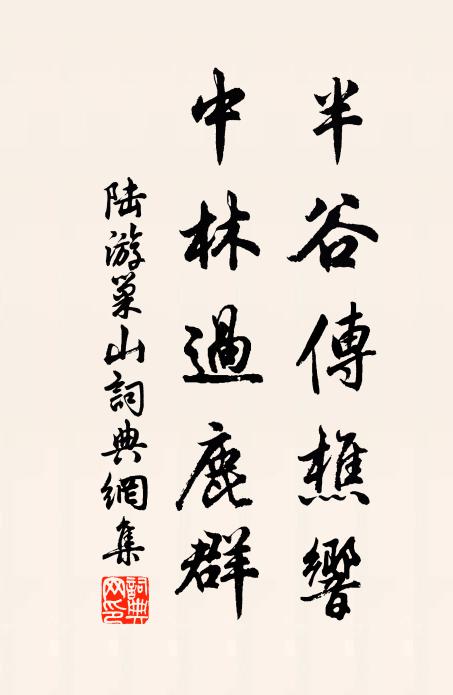 半谷傳樵響
中林過鹿群
陸游巢山詞典網集
詞典網印